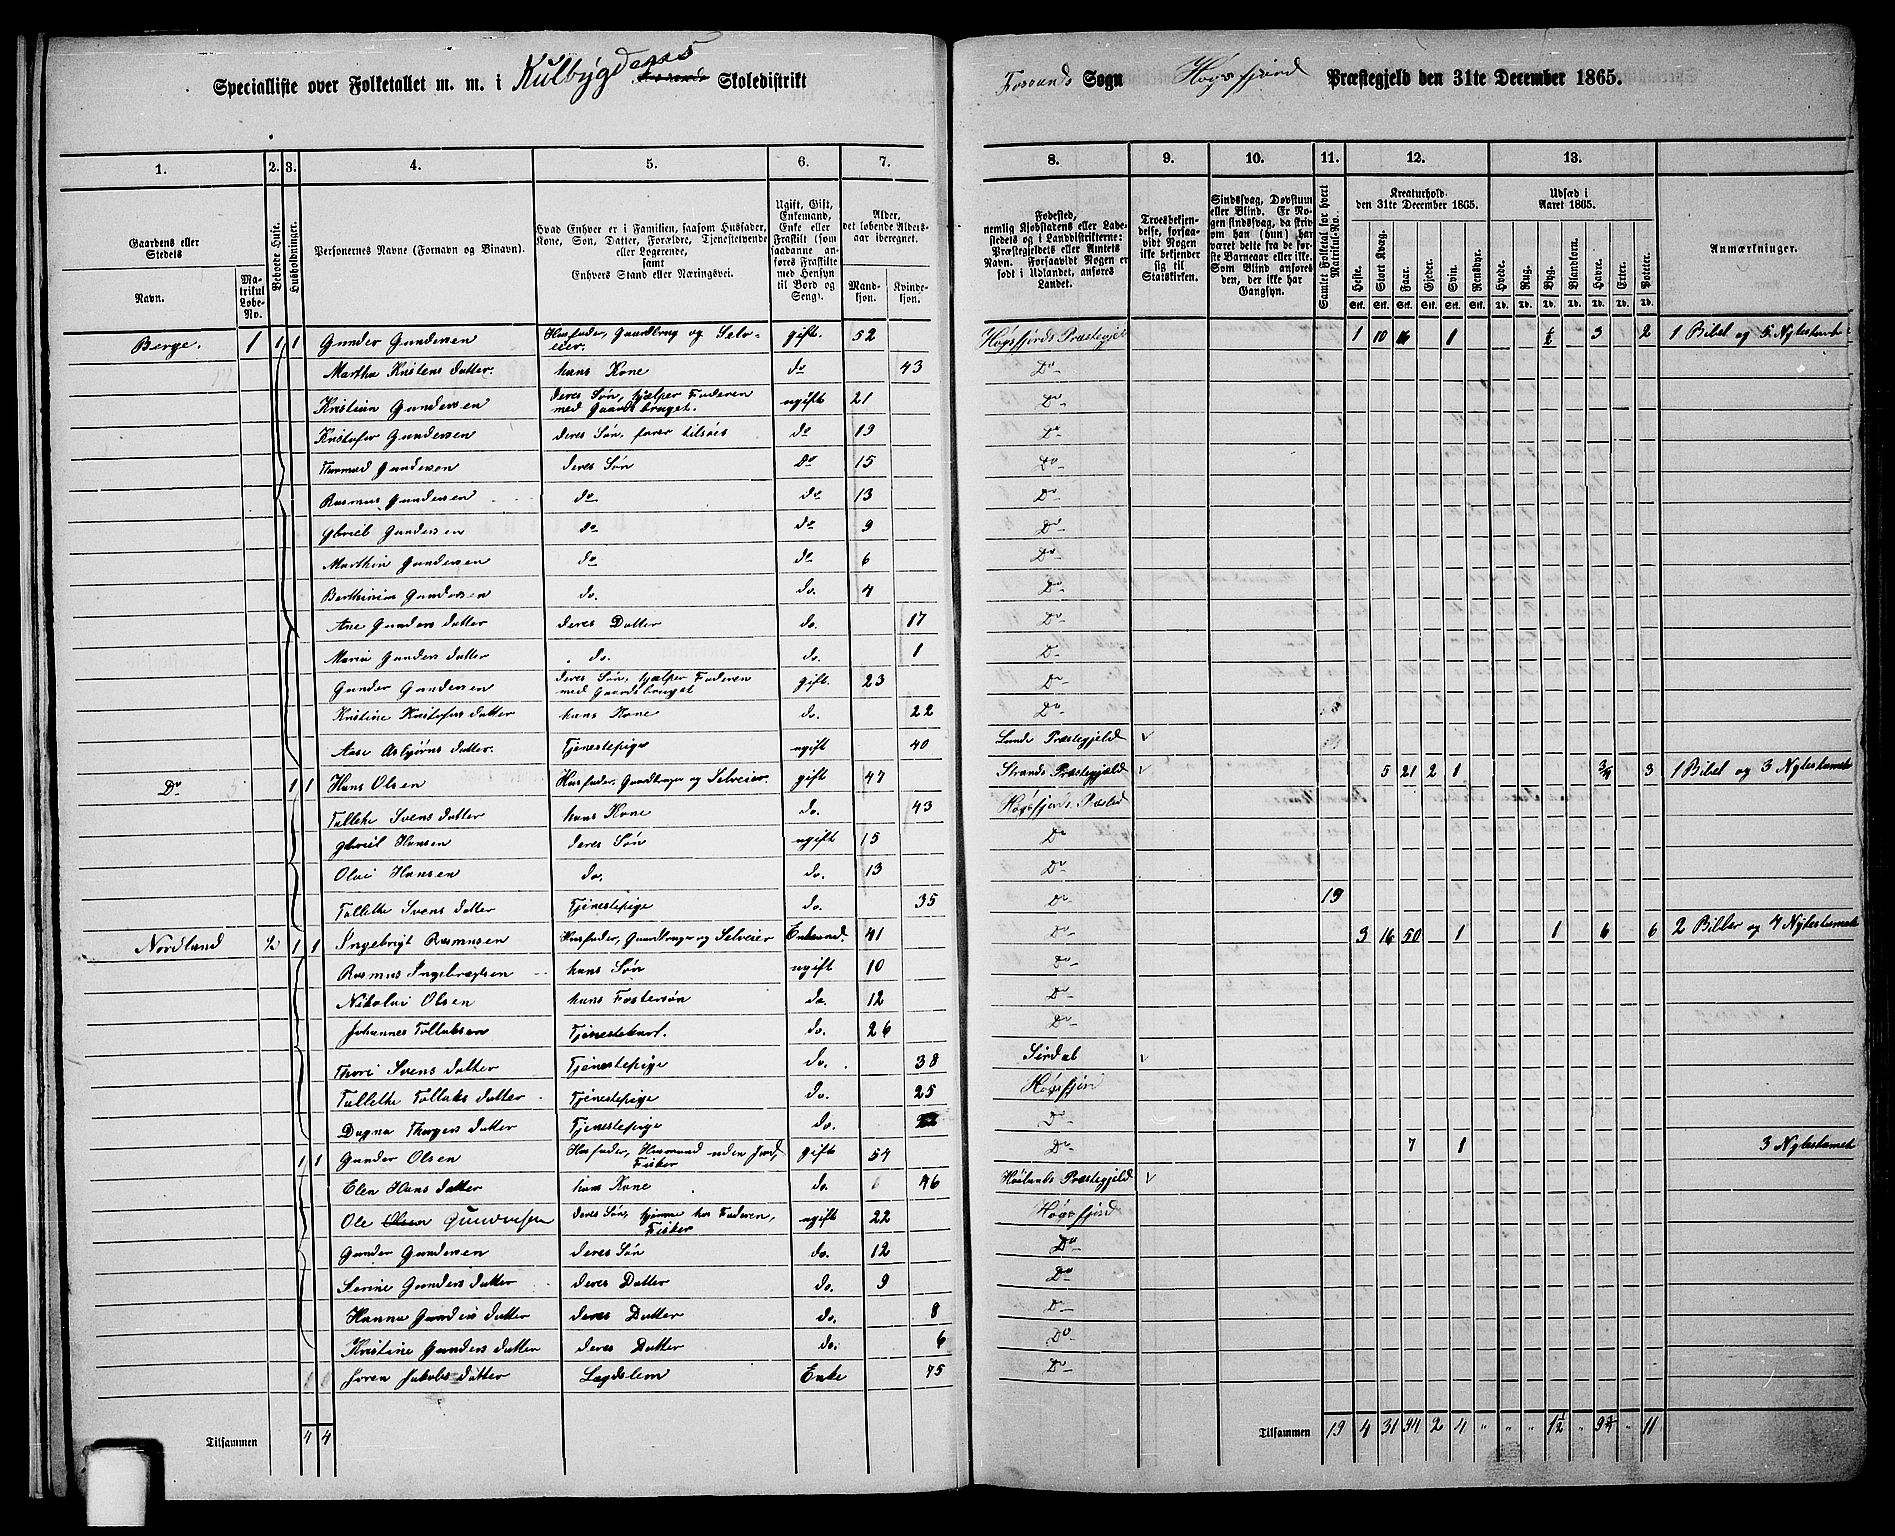 Specialliste over Folketallet m. m. i Kulbygdens Skoledistrikt
Fossands Sogn Høgsfjord Præstegjeld den 31te December 1865.
1. 2. 3. 4. 5. 6. 7. 8. 9. 10. 11. 12. 13.
Gaardens eller Stedets
Navn.
Matrikul Løbe-No.
Beboede Huse.
Husholdninger.
Personernes Navne (Fornavn og Binavn).
Hvad Enhver er i Familien, saasom Husfader, Kone, Søn, Datter, Forældre, Tjenestetyende eller Logerende, samt Enhvers Stand eller Næringsvei.
Ugift, Gift, Enkemand, Enke eller Fraskilt (som saadanne anføres Fraskilte med Hensyn til Bord og Seng).
Alder, det løbende Aldersaar iberegnet.
Mandkjøn. Kvindekjøn.
Fødested, nemlig Kjøbstadens eller Ladestedets og i Landdistrikterne: Præstegjeldets eller Amtets Navn. Forsaavidt Nogen er født i Udlandet, anføres Landet.
Troesbekjendelse, forsaavidt Nogen ikke bekjender sig til Statskirken.
Sindssvag, Døvstum eller Blind. Er Nogen Sindssvag, da skrives om han (hun) har været dette fra de første Barneaar eller ikke. Som Blind anføres den, der ikke har Gangsyn.
Samlet Folketal for hvert Matrikul-No.
Kreaturhold den 31te December 1865.
Heste. Stort Kvæg. Faar. Gjeder. Svin. Rensdyr.
Udsæd i Aaret 1865.
Hvede. Rug. Byg. Blandkorn. Havre. Erter. Poteter.
Anmærkninger.
Berge. 1 1 1 Gunder Gundersen Husfader, Gaardbrug og Selveier. gift. 52 Høgsfjords Præstegjeld 1 10 16 1 3 2 1 Bibel og 5 Nytesta
Martha Kristens datter. hans Kone do 43 Do
Kristian Gundersen deres Søn, hjælper Faderen med Gaardsbruget. ugift 21 Do
Kristofer Gundersen deres Søn, farer tilsøes do 19 Do
Gundersen deres Søn Do 15 Do
Rasmus Gundersen do do 13 Do
Gbriel Gundersen do do 9 Do
Marthin Gundersen do do 6 Do
Berthinius Gundersen do. do. 4 Do
Ane Gunders datter deres Datter do. 17 Do
Maria Gunders datter do. do. 1 Do
Gunder Gundersen deres Søn, hjælper Faderen med Gaardsbruget gift. 23 Do
Kristine Kristofers datter hans Kone do. 22 Do
Aase Asbjørns datter. Tjenestepige ugift 40 Lunde Præstegjeld
Do 1 1 Hans Olsen Husfader, Gaardbruger og Selveier. gift 47 Strands Præstegjeld 5 21 2 1 3/4 3 1 Bibel og 3 Nytestamente
Tallette Svens datter hans Kone do. 43 Høgsfjords
Gbriel Hansen deres Søn ugift 15 Do
Olai Hansen do. do. 13 Do
Tallette Svens datter Tjenestepige do. 35 Do 19
Nordland 2 1 1 Ingebrigt Rasmusen Husfader, Gaardbruger og Selveier Enkemd. 41 Do 3 16 50 1 1 6 6 2 Bibler og 4 Nytestamente
Rasmus Ingebregtsen hans Søn ugift 10 Do
Nikolai Olsen hans Fostersøn do. 12 Do
Johannes Tollaksen Tjenestekarl. do. 26 Do
Thori Svens datter Tjenestepige do. 38 Sirdal
Tallette Tollaks datter Tjenestepige do. 25 Høgsfjord
Dagna Thorgers datter Tjenestepige do. Do
1 1 Gunder Olsen Husfader, Husmand uden Jord, Fisker gift 54 Do 7 1 3 Nytestamente
Elen Hans datter hans Kone do. 46 Høilands Præstegjeld
Ole Gundersen deres Søn, hjemme hos Faderen, Fisker ugift 22 Høgsfjord
Gunder Gundersen deres Søn do. 12 Do
Serine Gunders datter deres Datter do. 9 Do
Hanna Gunders datter deres Datter do. 8 Do
Kristine Gunders datter deres Datter do. 6 Do
Joren Jakobs datter Lægdslem Enke 75 Do
Tilsammen 4 4
Tilsammen 19 4 31 94 2 4 " " " 1½ " 9¾ " 11